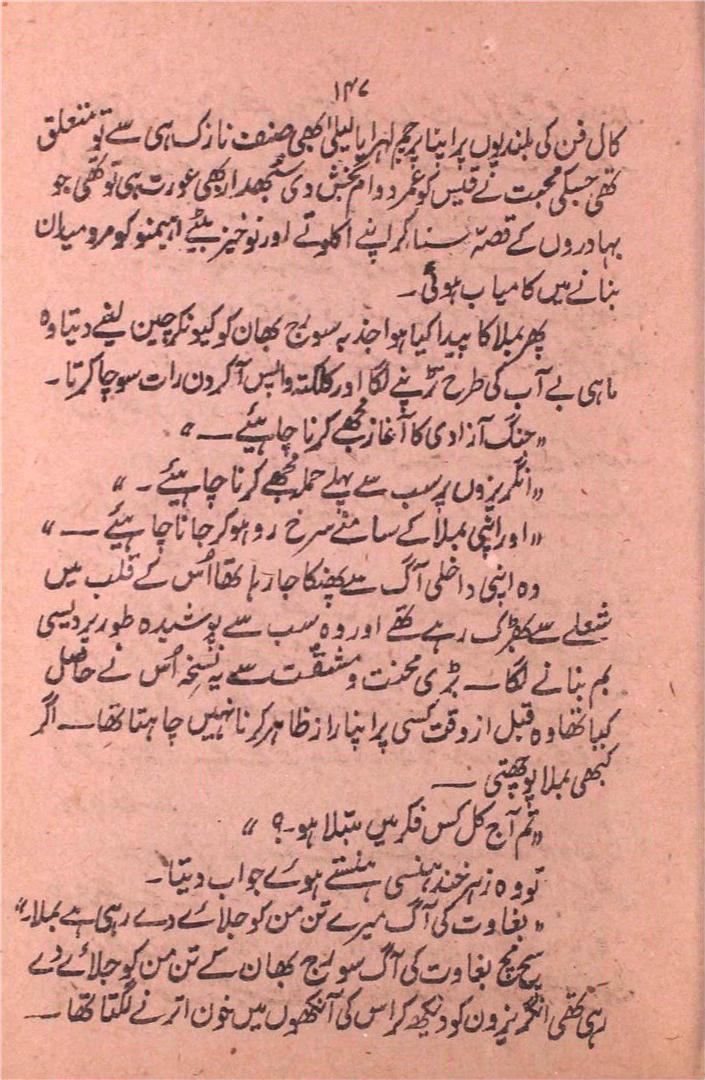 ۱۴۷
کال فن کی بلندیوں پر اپنا پرچم لہرایا لیلیٰ بھی صنف نازک ہی سے تو متعلق
تھی جسکی محبت نے قیس کو عمر دوام بخش دی سمجھدار بھی عورت ہی تو تھی جو
بہادروں کے قصہ سنا کر اپنے اکلوتے اور نوخیز بیٹے ابھیمنو کو مرد میدان
بنانے میں کامیاب ہوئی۔
پھر بملا کا پیدا کیا ہوا جذبہ سورج بھان کو کیونکر چین لینے دیتا وہ
ماہی بے آب کی طرح تڑپنے لگا اور کلکتہ واپس آ کر دن رات سوچا کرتا۔
"جنگ آزادی کا آغاز مجھے کرنا چاہیئے ــ"
"انگریزوں پر سب سے پہلے حملہ مجھے کرنا چاہیئے۔"
"اور اپنی بملا کے سامنے سرخ رو ہو کر جانا چاہیئے ــ"
وہ اپنی داخلی آگ سے پھنکا جا رہا تھا اُس کے قلب میں
شعلے سے بھڑک رہے تھے اور وہ سب سے پوشیدہ طور پر دیسی
بم بنانے لگا ــ بڑی محنت و مشقت سے یہ نسخہ اُس نے حاصل
کیا تھا وہ قبل از وقت کسی پر اپنا راز ظاہر کرنا نہیں چاہتا تھا ــ اگر
کبھی بملا پوچھتی ــ
"تم آج کل کس فکر میں مبتلا ہو۔؟"
تو وہ زہر خند ہنسی ہنستے ہوئے جواب دیتا۔
"بغاوت کی آگ میرے تن من کو جلائے دے رہی ہے بملا۔"
سچ مچ بغاوت کی آگ سورج بھان کے تن من کو جلائے دے
رہی تھی انگریزون کو دیکھ کر اس کی آنکھوں میں خون اترنے لگتا تھا ــ